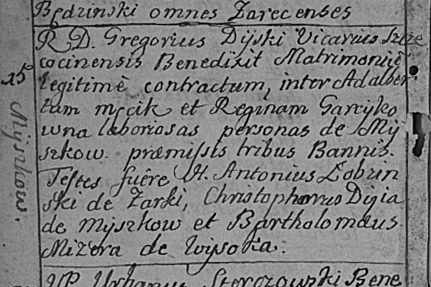 Będzinski omnes Zarecenses
R. D. Gregorius Dijski Vicarius Szcze
cocinensis Benedixit Matrimoniū
15
legitimè contractum, inter Adalber
tum mścik et Reginam Garcyko
wna laboriosas personas de Mÿ
szkow. præmissis tribus Bannis.
Mÿszkow.
Testes fuêre H. Antonius Dobrin
ski de Zarki, Christophorus Dijia
de Mÿszkow et Bartholomæus
Mizera de Wÿsoka.
VP. Urbanus Bene